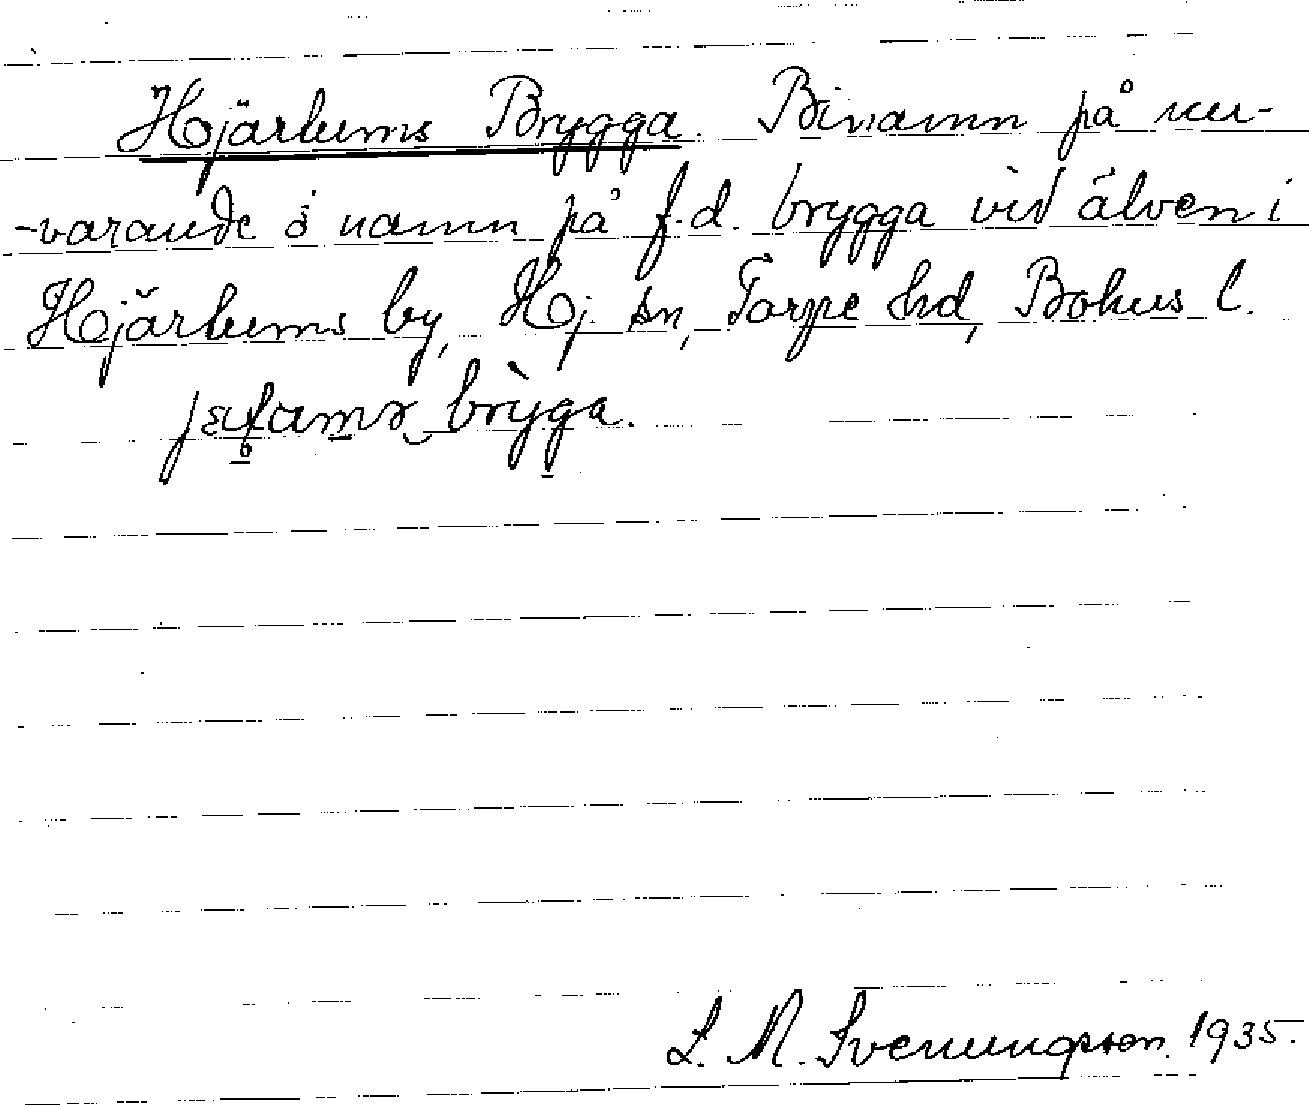 Hjärtums Brygga. Binamn på nu-
-varande ö namn på f.d. brygga vid älven i
Hjärtums by, Hj. sn, Torpe hd, Bohus l.
L. M. Svenungsson 1935.